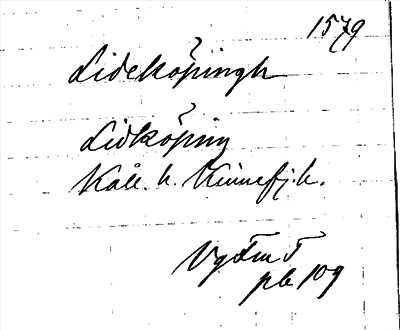 1579
Lideköpingh
Lidköping
Kåll. h. Kinnefj. h.
Vg Fm T
pb 109